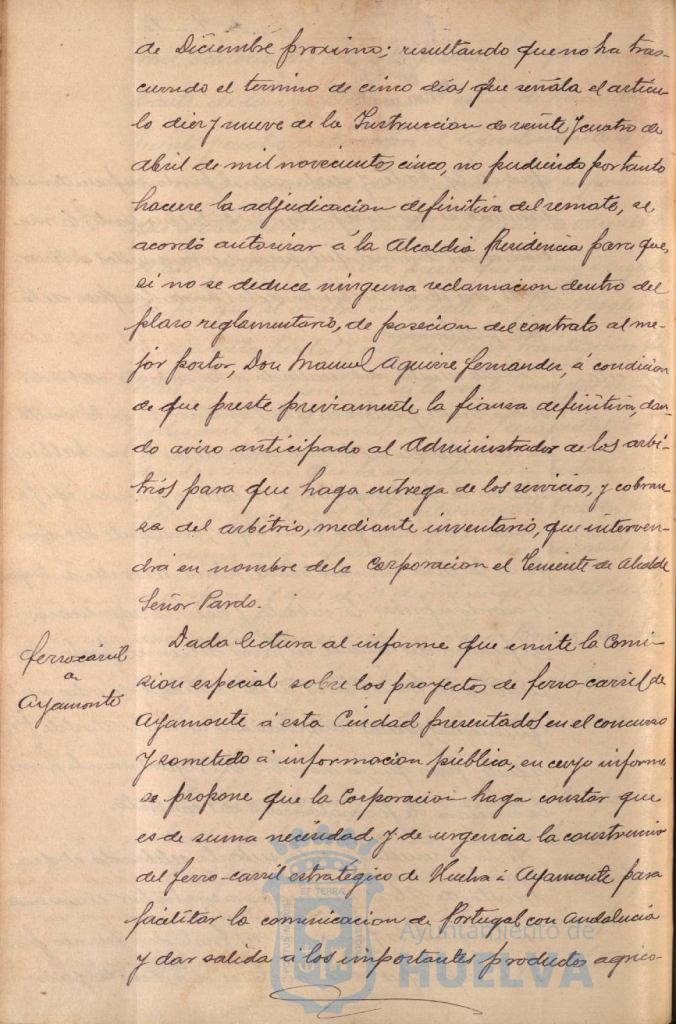 de Diciembre proximo; resultando que no ha tras-
currido el termino de cinco dias que señala el articu-
lo diez y nueve de la Instruccion de veinte y cuatro de
Abril de mil novecientos cinco, no pudiendo por tanto
hacerse la adjudicacion definitiva del remate, se
acordó autorizar á la Alcaldia Presidencia para que,
si no se deduce ninguna reclamacion dentro del
plazo reglamentario, de posecion del contrato al me-
jor postor, Don Manuel Aguirre Fernandez, á condicion
de que preste previamente la fianza definitiva, dan-
do aviso anticipado al Administrador de los arbi-
trios para que haga entrega de los servicios, y cobran-
za del arbitrio, mediante inventario, que interven-
drá en nombre de la Corporacion el Teniente de Alcalde
Señor Pardo.
ferro-cárril
a
Ayamonte
Dada lectura al informe que emite la Comi-
sion especial sobre los proyectos de ferro-carril de
Ayamonte á esta Ciudad presentados en el concurso
y sometido á informacion pública, en cuyo informe
se propone que la Corporacion haga constar que
es de suma necesidad y de urgencia la construccion
del ferro-carril estratégico de Huelva á Ayamonte para
facilitar la comunicacion de Portugal con Andalucia
y dar salida á los importantes productos agrico-
Ayuntamiento de
HUELVA